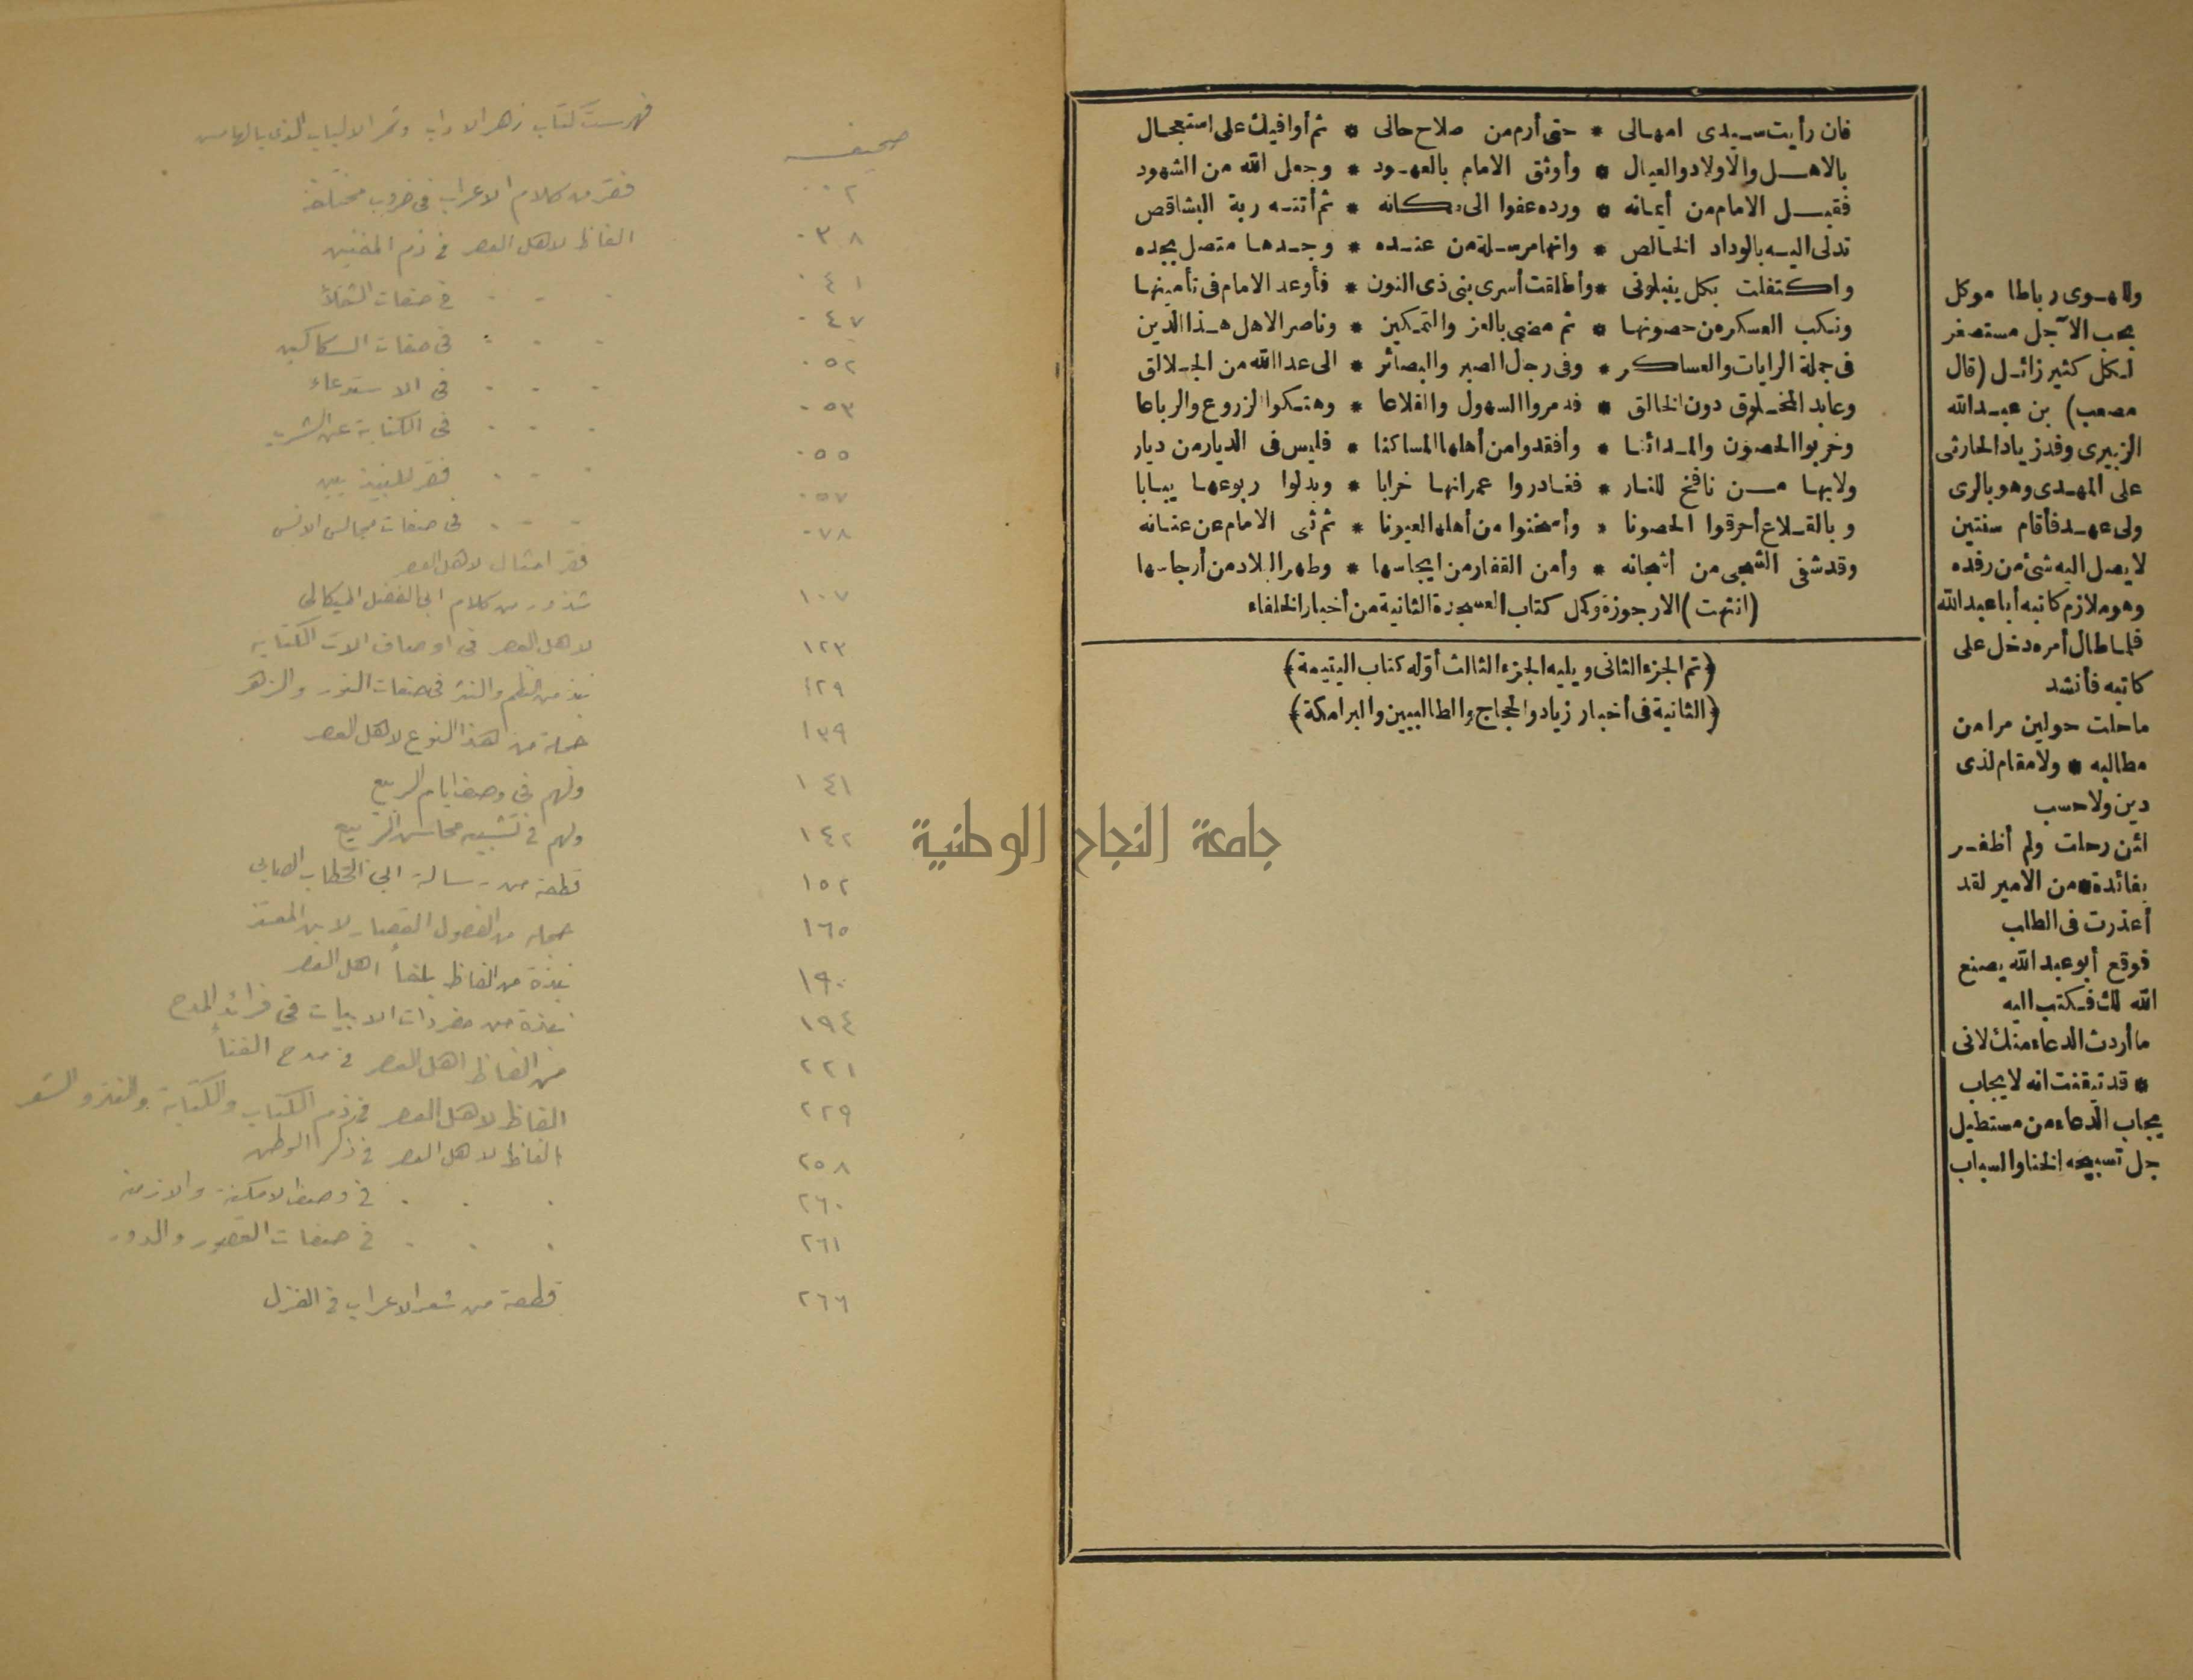 فان رأيت سيدى امهالى * حتى أرم من صلاح حالى * ثم أوافيك على استعجال
بالاهل والاولاد والعيال * وأوثق الامام بالعهود * وجعل الله من الشهود
فقبل الامام من أيمانه * ورده عفوا الى مكانه * ثم أتته ربة البشاقص
تدلى اليه بالوداد الخالص * وانها مرسلة من عنده * وجدها متصل بجده
واكتفلت بكل ينبلونى * وأطلقت أسرى بنى ذى النون * فأوعد الامام فى تأمينها
ونكب العسكر من حصونها * ثم مضى بالعز والتمكين * وناصر الاهل هذا الدين
فى جملة الرايات والعساكر * وفى رجال الصبر والبصائر * الى عدا الله من الجلالق
وعابد المخلوق دون الخالق * فدمروا السهول والقلاعا * وهتكوا الزروع والرباعا
وخربوا الحصون والمدائنا * وأفقدوا من أهلها المساكنا * فليس فى الديار من ديار
ولا بها من نافخ للنار * فغادروا عمرانها خرابا * وبدلوا ربوعها يبابا
وبالقلاع أحرقوا الحصونا * وأسخنوا من أهلها العيونا * ثم ثنى الامام عن عنانه
وقد شفى الشجى من أشجانه * وأمن القفار من ايجاسها * وطهر البلاد من أرجاسها
(انتهت) الارجوزة وكمل كتاب العسجدة الثانية من أخبار الخلفاء
﴿تم الجزء الثانى ويليه الجزء الثالث أوله كتاب اليتيمة﴾
﴿الثانية فى أخبار زياد والحجاج والطالبيين والبرامكة﴾
وللهوى رباطا موكل
بحب الآجل مستصغر
لكل كثير زائل (قال
مصعب) بن عبد الله
الزبيرى وفد زياد الحارثى
على المهدى وهو بالرى
ولى عهد فأقام سنتين
لا يصل اليه شئ من رفده
وهو ملازم كاتبه أبا عبد الله
فلما طال أمره دخل على
كاتبه فأنشد
ما حلت حولين مرا من
مطالبه * ولا مقام لذى
دين ولا حسب
لئن رحلت ولم أظفر
بفائدة * من الامير لقد
أعذرت فى الطلب
فوقع أبو عبد الله يصنع
الله لك فكتب اليه
ما أردت الدعاء منك لانى
* قد تيقنت انه لا يجاب
يجاب الدعاء من مستطيل
جل تسبيحه الخنا والسباب
جامعة النجاح الوطنية
فهرست كتاب زهر الاداب وثمر الالباب الذى بالهامس
صحيفه
٠٠٢ فقر من كلام الاعراب فى ضروب مختلفة
٠٣٨ الفاظ لاهل العصر فى ذم المغنيين
٠٤١ - - - فى صفات الثقلاء
٠٤٧ - - - فى صفات السكاكين
٠٥٢ - - - فى الاستدعاء
٠٥٣ - - - فى الكناية عن الشرب
٠٥٥ - - - فقر للنبيذيين
٠٥٧ - - - فى صفات مجالس الانس
٠٧٨ فقر امثال لاهل العصر
١٠٧ شذور من كلام ابى الفضل الميكالى
١٢٣ لاهل العصر فى اوصاف الات الكتابه
١٢٩ نبذ من النظم والنثر فى صفات النور والزهر
١٣٩ جملة من هذا النوع لاهل العصر
١٤١ ولهم فى وصف ايام الربيع
١٤٢ ولهم فى تشبيه محاسن الربيع
١٥٢ قطعة من رسالة ابى الخطاب الصابى
١٦٥ جملة من الفصول القصار لابن المعتز
١٩٠ نبذة من الفاظ بلغاء اهل العصر
١٩٤ نبذة من مفردات الابيات فى فرائد المدح
٢٢١ من الفاظ اهل العصر فى مدح الغناء
٢٢٩ الفاظ لاهل العصر فى ذم الكتاب والكتابة والنثر والشعر
٢٥٨ الفاظ لاهل العصر فى ذكر الوطن
٢٦٠ . . . فى وصف الامكنة والازمنة
٢٦١ . . . فى صفات القصور والدور
٢٦٦ قطعة من شعر الاعراب فى الغزل